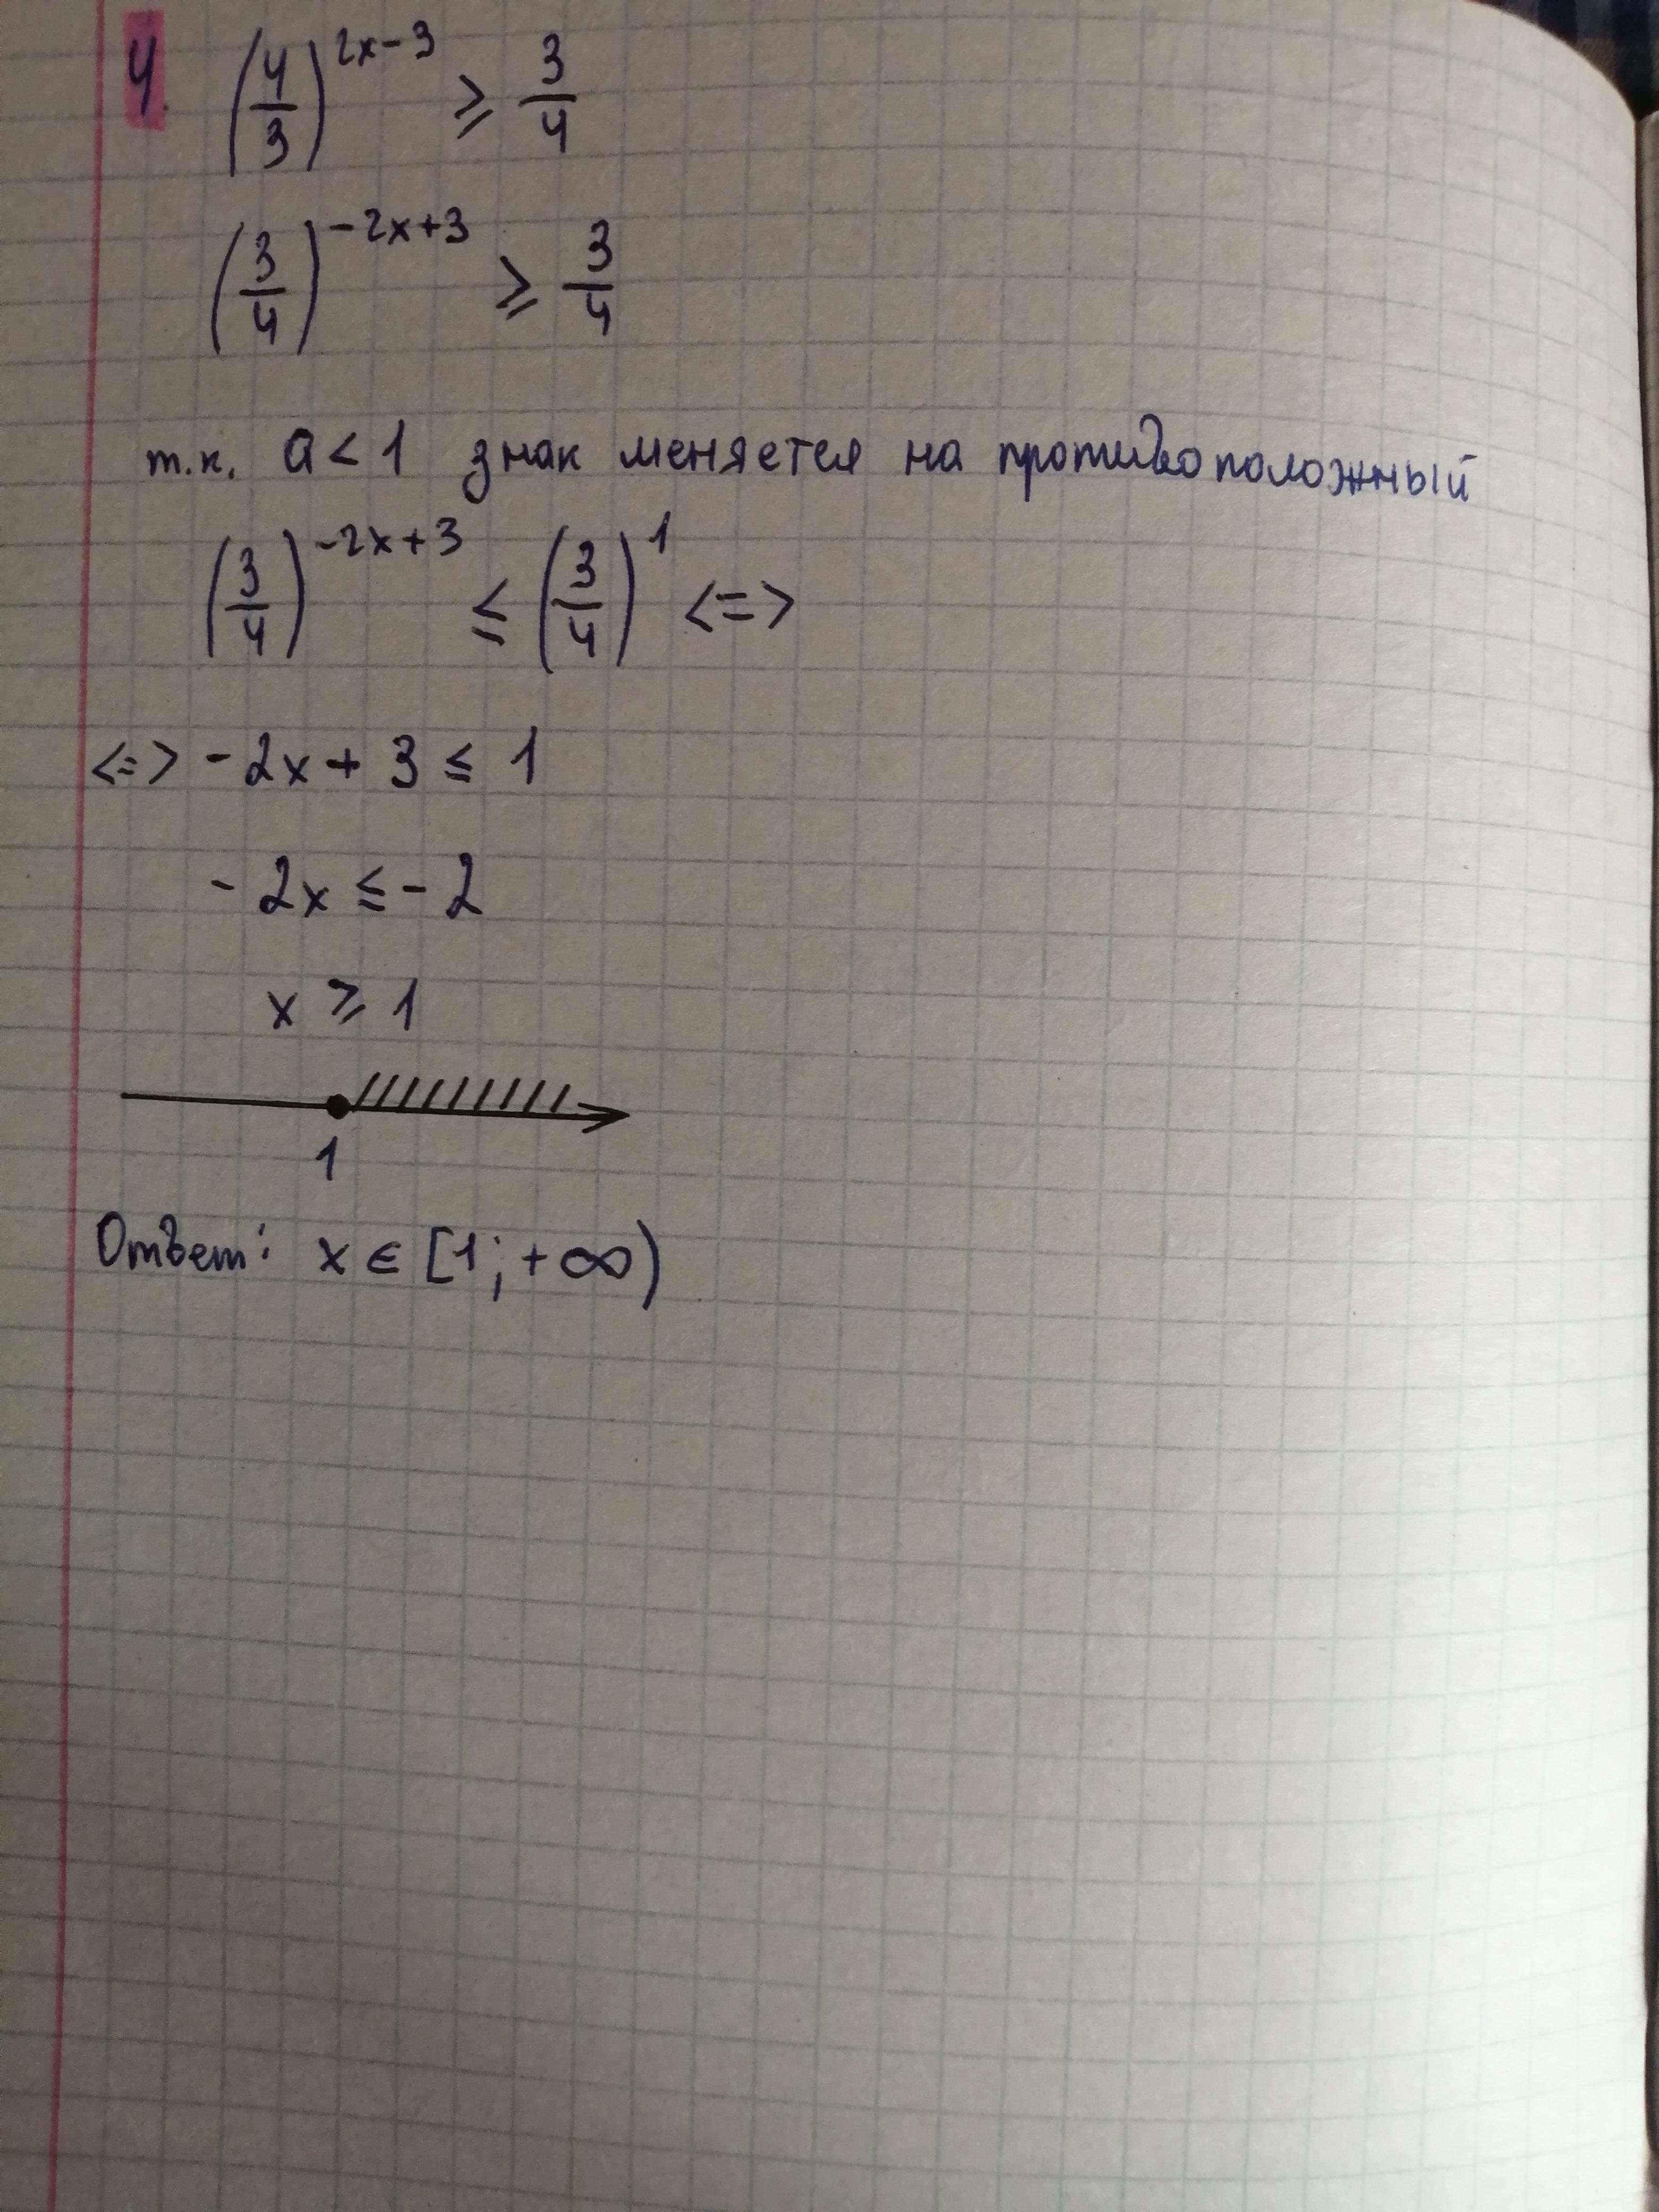 4. (4/3)^(2x-3) ≥ 3/4
(3/4)^(-2x+3) ≥ 3/4
т.к. a < 1 знак меняется на противоположный
(3/4)^(-2x+3) ≤ (3/4)^1 <=>
<=> -2x + 3 ≤ 1
-2x ≤ -2
x ≥ 1
1
Ответ: x ∈ [1; +∞)